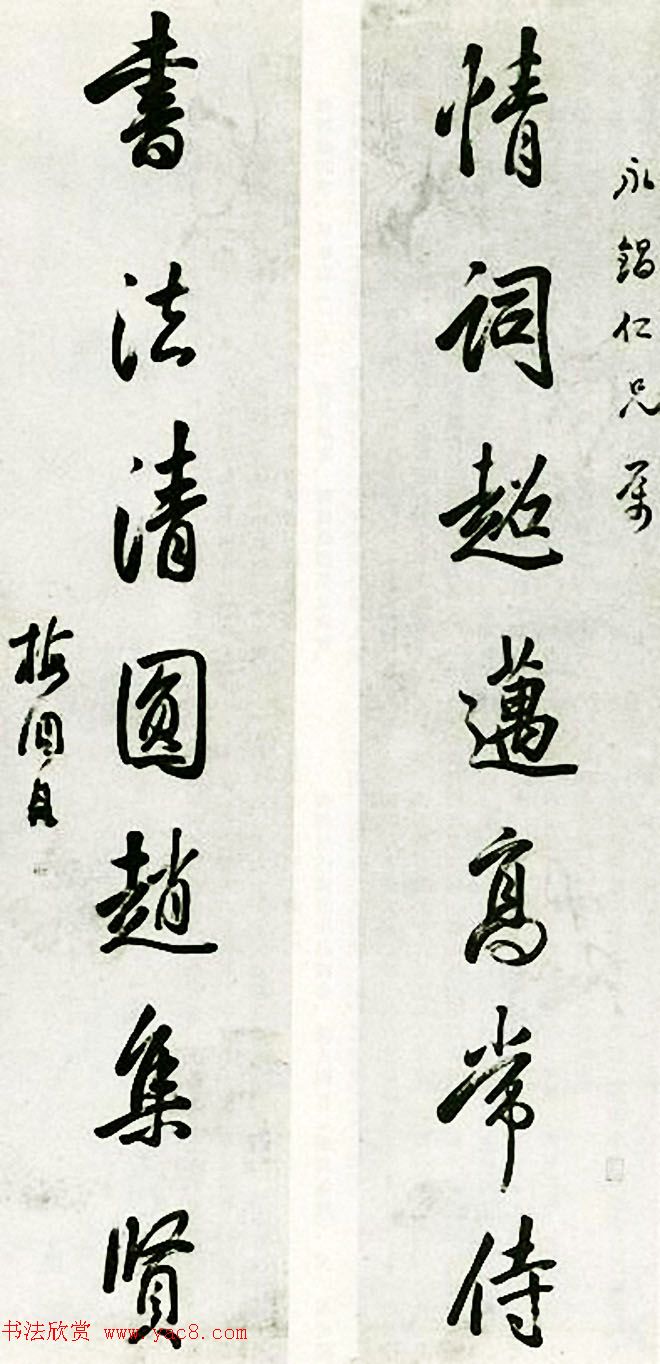 永錩仁兄属
情词超邁高常侍
書法清圆趙集贤
梅调鼎
书法欣赏 www.yac8.com